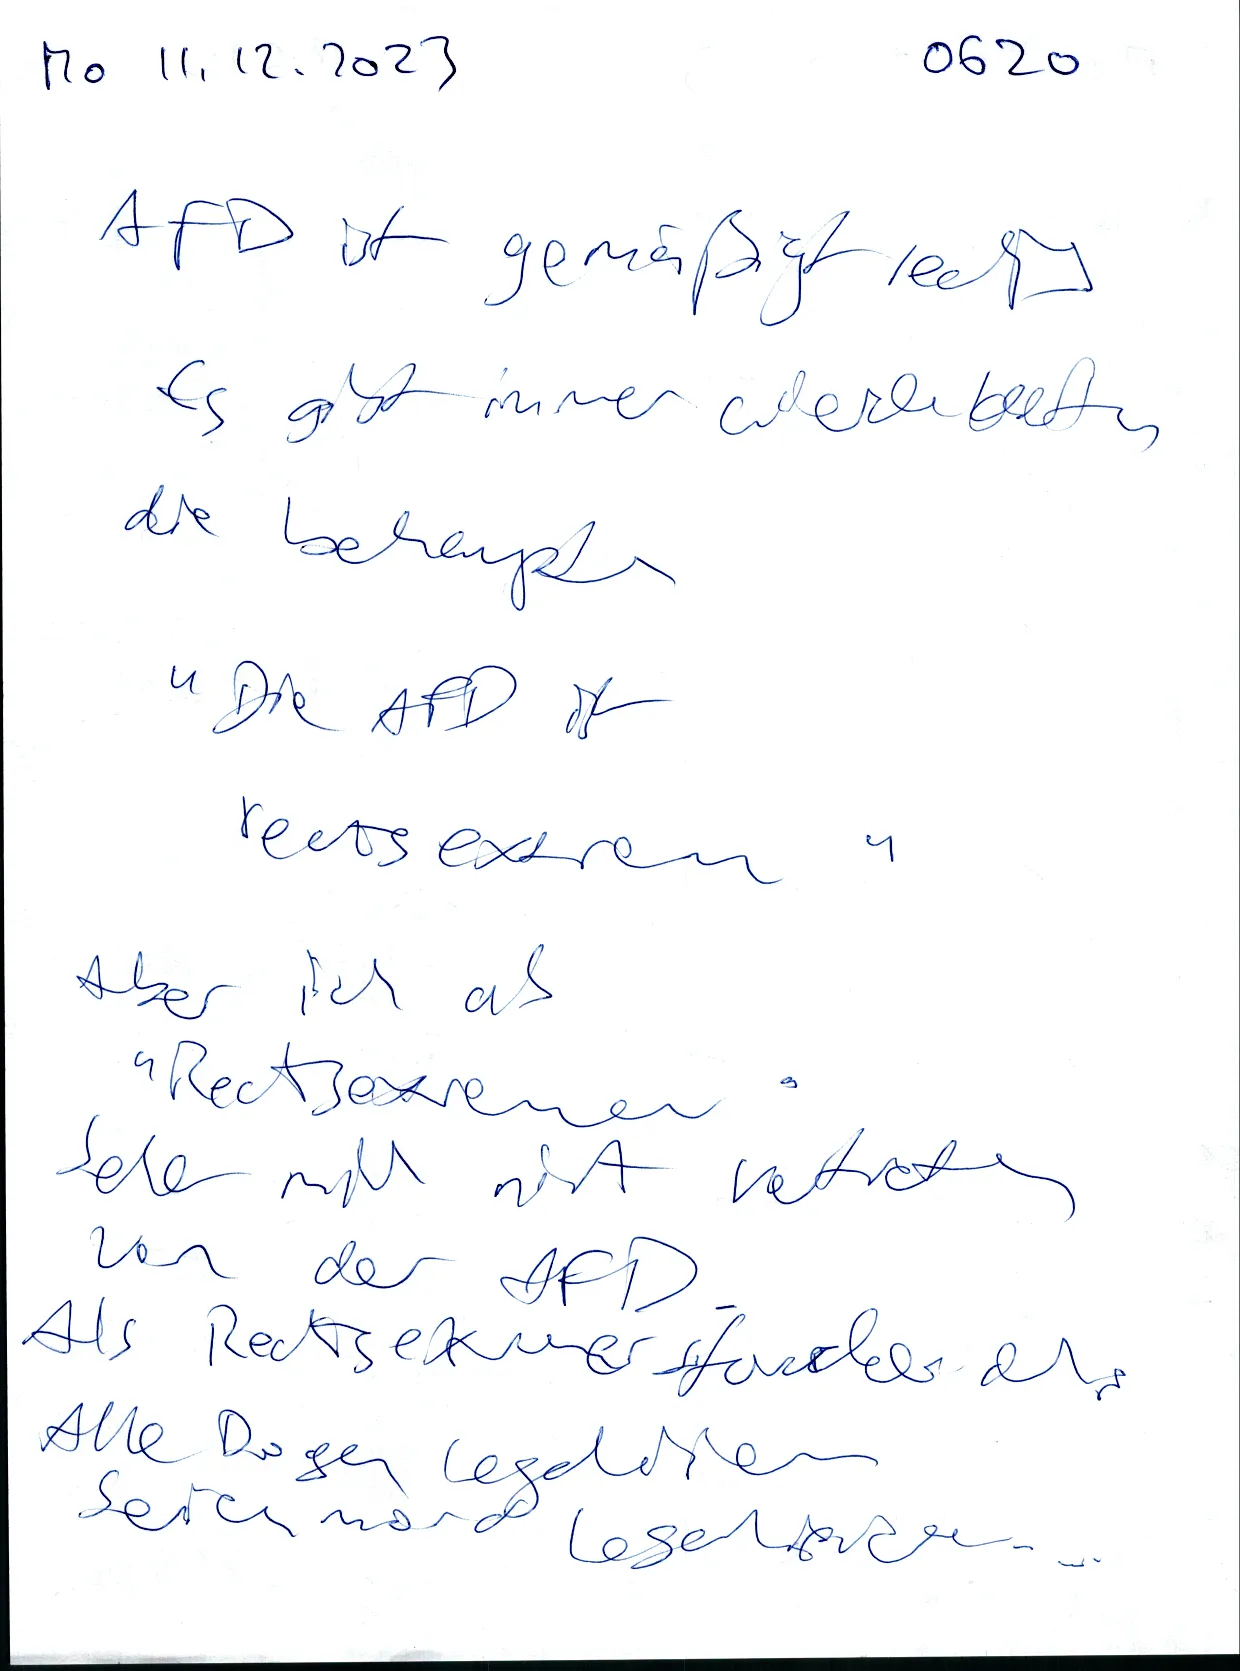 Mo 11.12.2023 0620
AfD ist gemäßigt rechts
Es gibt immer
die behaupten
"Die AfD ist
rechtsextrem"
Aber ich als
"Rechtsextremer"
sehe mich nicht vertreten
von der AfD.
Als Rechtsextremer
Alle Drogen legalisieren
legalisieren...